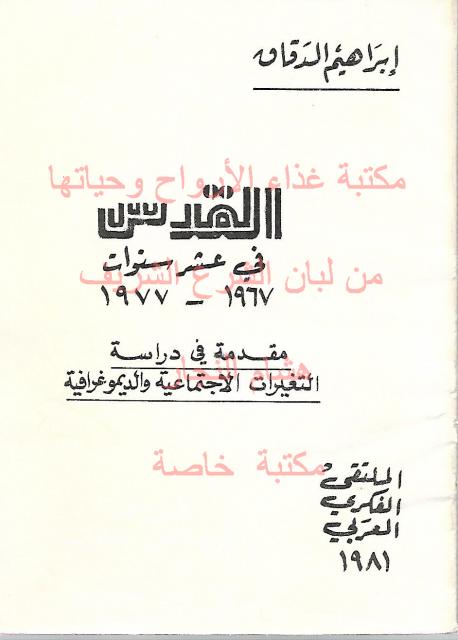 إبراهيم الدقاق
مكتبة غذاء الأرواح وحياتها
القدس
في عشر سنوات
من لبان الشرع الشريف
١٩٦٧ - ١٩٧٧
مقدمة في دراسة
هشام النجار
التغيرات الاجتماعية والديموغرافية
مكتبة خاصة
الملتقى
الفكري
العربي
١٩٨١